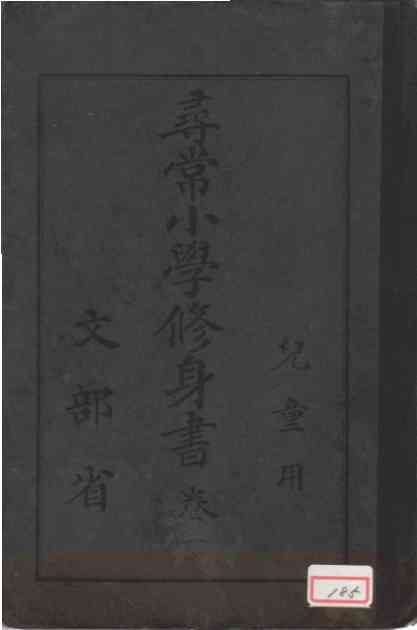 兒童用
尋常小學修身書 卷一
文部省
185